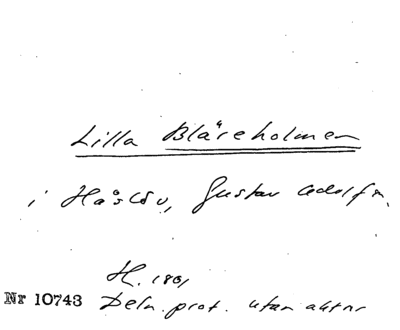 Lilla Blåreholmen
i Håslöv, Gustav Adolf s.
H. 1801
Nr 10743 Deln. prot. utan aktnr